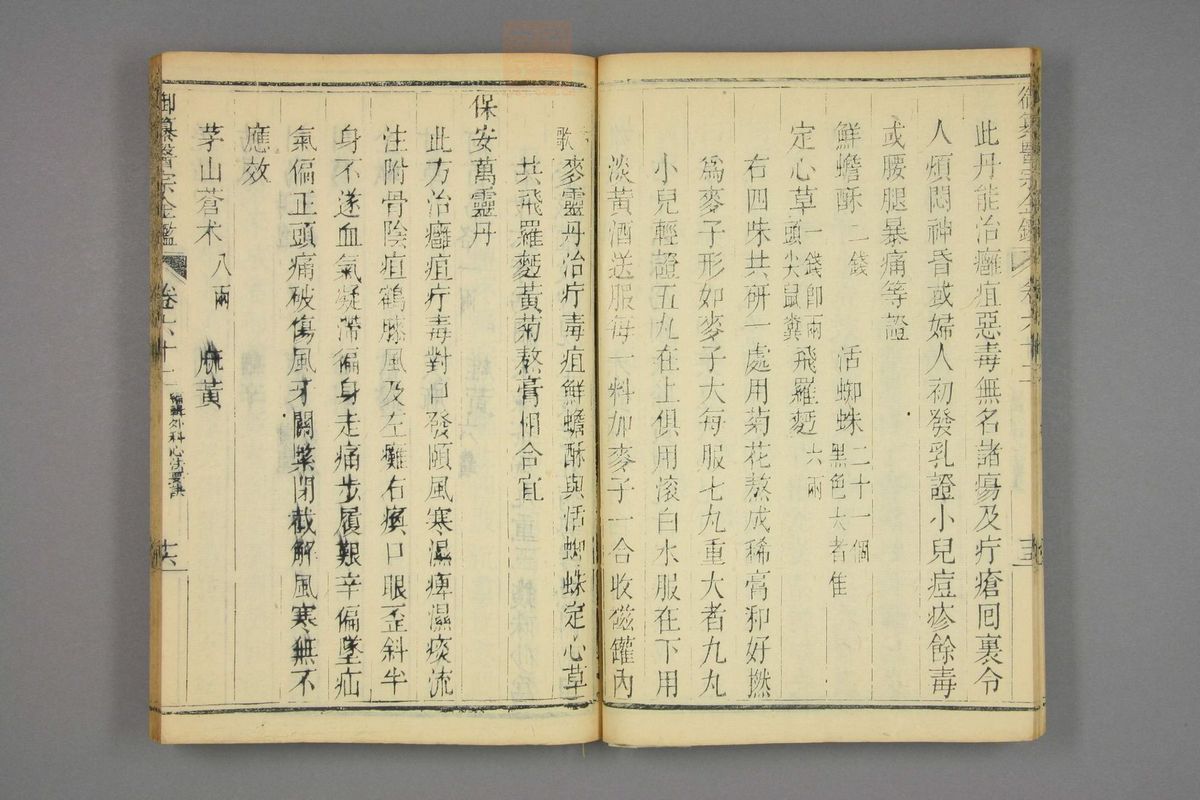 此丹能治癰疽惡毒無名諸瘍及疔瘡囘裏令
人煩悶神昏或婦人初發乳證小兒痘疹餘毒
或腰腿暴痛等證
鮮蟾酥二錢 活蜘蛛二十一個黑色大者隹
定心草一錢卽兩頭尖鼠糞 飛羅麪六兩
右四味共研一處用菊花熬成稀膏和好撚
爲麥子形如麥子大每服七丸重大者九丸
小兒輕證五丸在上俱用滚白水服在下用
淡黃酒送服每一料加麥子一合收磁罐內
歌 麥靈丹治疔毒疽鮮蟾酥與活蜘蛛定心草
共飛羅麪黃菊熬膏相合宜
保安萬靈丹
此方治癰疽疔毒對口發頤風寒濕痺濕痰流
注附骨陰疽鶴膝風及左癱右瘓口眼歪斜半
身不遂血氣凝滯徧身走痛步履艱辛偏墜疝
氣偏正頭痛破傷風牙關緊閉截解風寒無不
應效
茅山蒼术八兩 麻黃
御纂醫宗金鑑 卷六十二 編輯外科心法要訣 十六